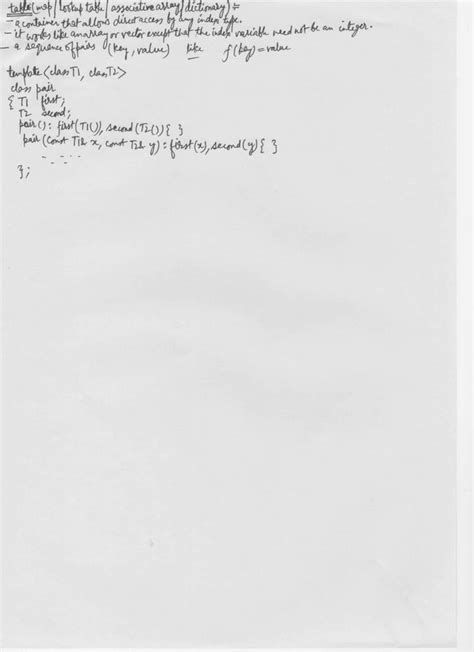 table (map / lookup table / associative array / dictionary) =
- a container that allows direct access by any index type.
- it works like an array or vector except that the index variable need not be an integer.
- a sequence of pairs (key, value) like f(key) = value
template <class T1, class T2>
class pair
{ T1 first;
T2 second;
pair(): first(T1()), second(T2()) { }
pair(const T1& x, const T2& y): first(x), second(y) { }
- - - - -
};